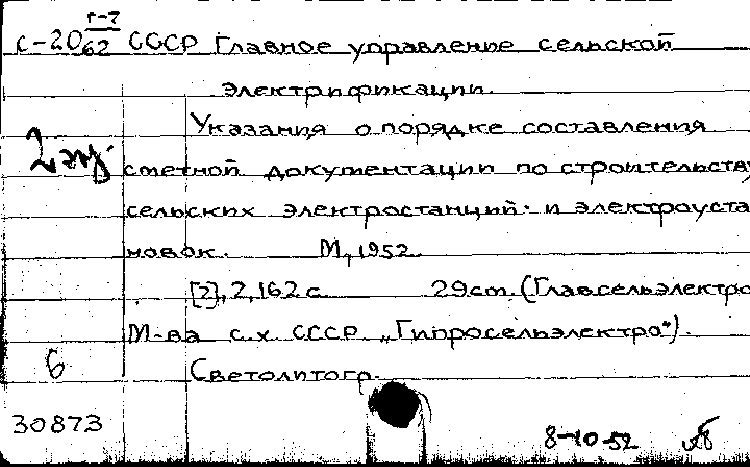 г-7
С-20 62 СССР Главное управление сельской
электрификации.
Указания о порядке составления
2 экз.
сметной документации по строительству
сельских электростанций и электроуста
новок. М, 1952.
[2], 2, 162 с 29 см. (Главсельэлектро
М-ва с.х. СССР. „Гипросельэлектро").
6
Светолитогр.
30873
8-10-52